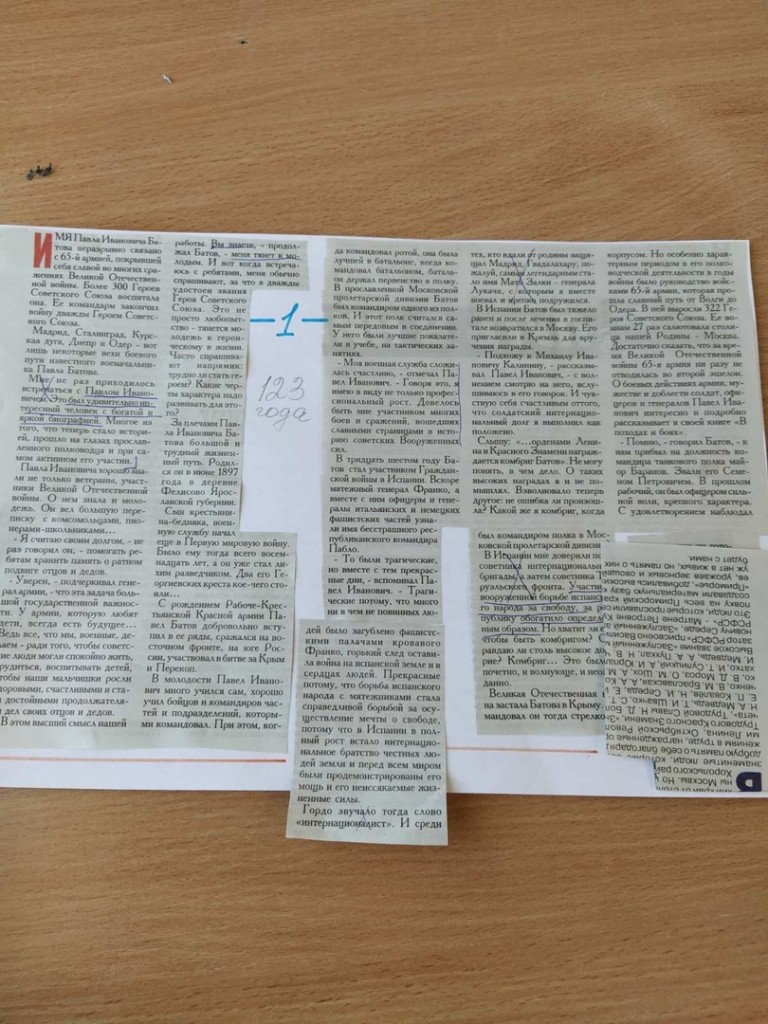 ИМЯ Павла Ивановича Ба-
това неразрывно связано
с 65-й армией, покрывшей
себя славой во многих сра-
жениях Великой Отечествен-
ной войны. Более 300 Героев
Советского Союза воспитала
она. Ее командарм закончил
войну дважды Героем Советс-
кого Союза.
Мадрид, Сталинград, Курс-
кая дуга, Днепр и Одер - вот
лишь некоторые вехи боевого
пути известного военачальни-
ка Павла Батова.
Мне не раз приходилось
встречаться с Павлом Ивано-
вичем. Это был удивительно ин-
тересный человек с богатой и
яркой биографией. Многое из
того, что теперь стало истори-
ей, прошло на глазах прославлен-
ного полководца и при са-
мом активном его участии.
Павла Ивановича хорошо зна-
ли не только ветераны, участ-
ники Великой Отечественной
войны. О нем знала и моло-
дежь. Он вел большую пере-
писку с комсомольцами, пио-
нерами-школьниками...
- Я считаю своим долгом, - не
раз говорил он, - помогать ре-
бятам хранить память о ратном
подвиге отцов и дедов.
- Уверен, - подчеркивал гене-
рал армии, - что эта задача боль-
шой государственной важнос-
ти. У армии, которую любят
дети, всегда есть будущее...
Ведь все, что мы, военные, де-
лаем - ради того, чтобы советс-
кие люди могли спокойно жить,
трудиться, воспитывать детей,
чтобы наши мальчишки росли
здоровыми, счастливыми и ста-
ли достойными продолжателя-
ми дел своих отцов и дедов.
В этом высший смысл нашей
работы. Вы знаете, - продол-
жал Батов, - меня тянет к мо-
лодым. И вот когда встреча-
юсь с ребятами, меня обычно
спрашивают, за что я дважды
удостоен звания
Героя Советского
Союза. Это не
просто любопыт-
ство - тянется мо-
лодежь к герои-
ческому в жизни.
Часто спрашива-
ют напрямую:
трудно ли стать ге-
роем? Какие чер-
ты характера надо
развивать для это-
го?
За плечами Пав-
ла Ивановича Ба-
това большой и
трудный жизнен-
ный путь. Родил-
ся он в июне 1897
года в деревне
Фелисово Ярос-
лавской губернии.
Сын крестьяни-
на-бедняка, воен-
ную службу начал
еще в Первую мировую войну.
Было ему тогда всего восем-
надцать лет, а он уже стал ли-
хим разведчиком. Два его Ге-
оргиевских креста кое-чего сто-
или...
С рождением Рабоче-Крес-
тьянской Красной армии Па-
вел Батов добровольно всту-
пил в ее ряды, сражался на во-
сточном фронте, на юге Рос-
сии, участвовал в битве за Крым
и Перекоп.
В молодости Павел Ивано-
вич много учился сам, хорошо
учил бойцов и командиров час-
тей и подразделений, которы-
ми командовал. При этом, ког-
1
123
года
да командовал ротой, она была
лучшей в батальоне, когда ко-
мандовал батальоном, баталь-
он держал первенство в полку.
В прославленной Московской
пролетарской дивизии Батов
был командиром одного из пол-
ков. И этот полк считался са-
мым передовым в соединении.
У него были лучшие показате-
ли в учебе, на тактических за-
нятиях.
- Моя военная служба сложи-
лась счастливо, - отмечал Па-
вел Иванович. - Говоря это, я
имею в виду не только профес-
сиональный рост. Довелось
быть мне участником многих
боев и сражений, вошедших
славными страницами в исто-
рию советских Вооруженных
сил.
В тридцать шестом году Ба-
тов стал участником Граждан-
ской войны в Испании. Вскоре
мятежный генерал Франко, а
вместе с ним офицеры и гене-
ралы итальянских и немецких
фашистских частей узна-
ли имя бесстрашного рес-
публиканского командира
Пабло.
- То были трагические,
но вместе с тем прекрас-
ные дни, - вспоминал Па-
вел Иванович. - Траги-
ческие потому, что много
ни в чем не повинных лю-
дей было загублено фашистс-
кими палачами кровавого
Франко, горький след остави-
ла война на испанской земле и в
сердцах людей. Прекрасные
потому, что борьба испанского
народа с мятежниками стала
справедливой борьбой за осу-
ществление мечты о свободе,
потому что в Испании в пол-
ный рост встало интернацио-
нальное братство честных лю-
дей земли и перед всем миром
были продемонстрированы его
мощь и его неиссякаемые жиз-
ненные силы.
Гордо звучало тогда слово
«интернационалист». И среди
тех, кто вдали от родины защи-
щал Мадрид, Гвадалахару, по-
жалуй, самым легендарным ста-
ло имя Мате Залки - генерала
Лукача, с которым я вместе
воевал и крепко подружился.
В Испании Батов был тяжело
ранен и после лечения в гос-
питале возвратился в Москву. Его
пригласили в Кремль для вру-
чения награды.
- Подхожу к Михаилу Ива-
новичу Калинину, - рассказы-
вал Павел Иванович, - с вол-
нением смотрю на него, вслу-
шиваюсь в его говорок. И чув-
ствую себя счастливым оттого,
что солдатский интернациональ-
ный долг я выполнил как
положено.
Слышу: «...орденами Лени-
на и Красного Знамени награж-
дается комбриг Батов». Не могу
понять, в чем дело. О таких
высоких наградах я и не по-
мышлял. Взволновало теперь
другое: не ошибка ли произош-
ла? Какой же я комбриг, когда
был командиром полка в Мос-
ковской пролетарской дивизи
В Испании мне доверили по
советника интернациональн
бригады, а затем советника Т
руэльского фронта. Участи
вооруженной борьбе испанс
го народа за свободу, за р
публику обогатило определ
ным образом. Но хватит ли
чтобы быть комбригом?
равдаю ли столь высокое до
рие? Комбриг... Это был
почетно, и волнующе, и нео
данно.
Великая Отечественная
на застала Батова в Крыму
мандовал он тогда стрелко
корпусом. Но особенно харак-
терным периодом в его полко-
водческой деятельности в годы
войны было руководство войс-
ками 65-й армии, которая про-
шла славный путь от Волги до
Одера. В ней выросли 322 Ге-
роя Советского Союза. Ее во-
инам 27 раз салютовала столи-
ца нашей Родины - Москва.
Достаточно сказать, что за вре-
мя Великой Отечественной
войны 65-я армия ни разу не
отводилась во второй эшелон.
О боевых действиях армии, му-
жестве и доблести солдат, офи-
церов и генералов Павел Ива-
нович интересно и подробно
рассказывает в своей книге «В
походах и боях».
- Помню, - говорил Батов, - к
нам прибыл на должность ко-
мандира танкового полка май-
ор Баранов. Звали его Семе-
ном Петровичем. В прошлом
рабочий, он был офицером силь-
ной воли, крепкого характера.
С удовлетворением наблюдал